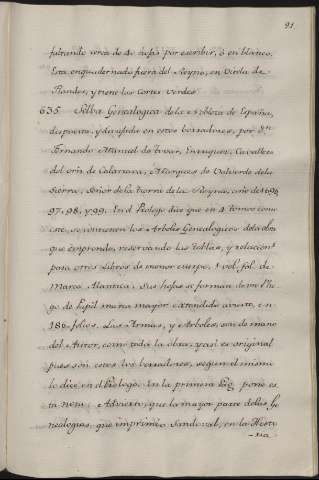 91.
faltando cerca de 40 hojas por escribir, ó en blanco.
Esta enquadernado fuera del Reyno, en Vitela de
Flandes, y tiene los Cortes Verdes
635 Selva Genealogica de la Nobleza de España,
dispuesta, y dibujada en estos borradores, por Dn.
Fernando Manuel de Tovar, Enriquez, Cavallero
del orñ. de Calatrava, Marques de Valverde de la
Sierra, Señor de la tierra de la Reyna, año de 1696
97, 98, y 99. En el Prologo dice que en 4 tomos como
este, se contienen los Arboles Genealogicos de la obra
que emprende, reservando las tablas, y relacions.
para otros Libros de menor cuerpo. 1 vol. fol. de
Marca Atlantica. Sus hojas se forman de un Plie-
go de Papel marca mayor extendido abierto, en
186 folios. Las Armas, y Arboles, son de mano
del Autor, como toda la obra, y asi es original
pues son estos los borradores, segun el mismo
lo dice en el Prologo. En la primera Pag. pone es
ta nota: Advierto, que la mayor parte de las Ge
nealogias, que imprimio Sandoval, en la Histo
=ria